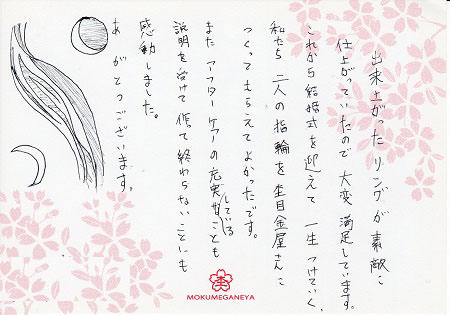 出来上がったリングが素敵に
仕上がっていたので大変満足しています。
これから結婚式を迎えて一生つけていく、
私たち二人の指輪を杢目金屋さんに
つくってもらえてよかったです。
また アフターケアの充実していることも
説明を受けて作って終わらないことにも
感動しました。
ありがとうございます。
MOKUMEGANEYA